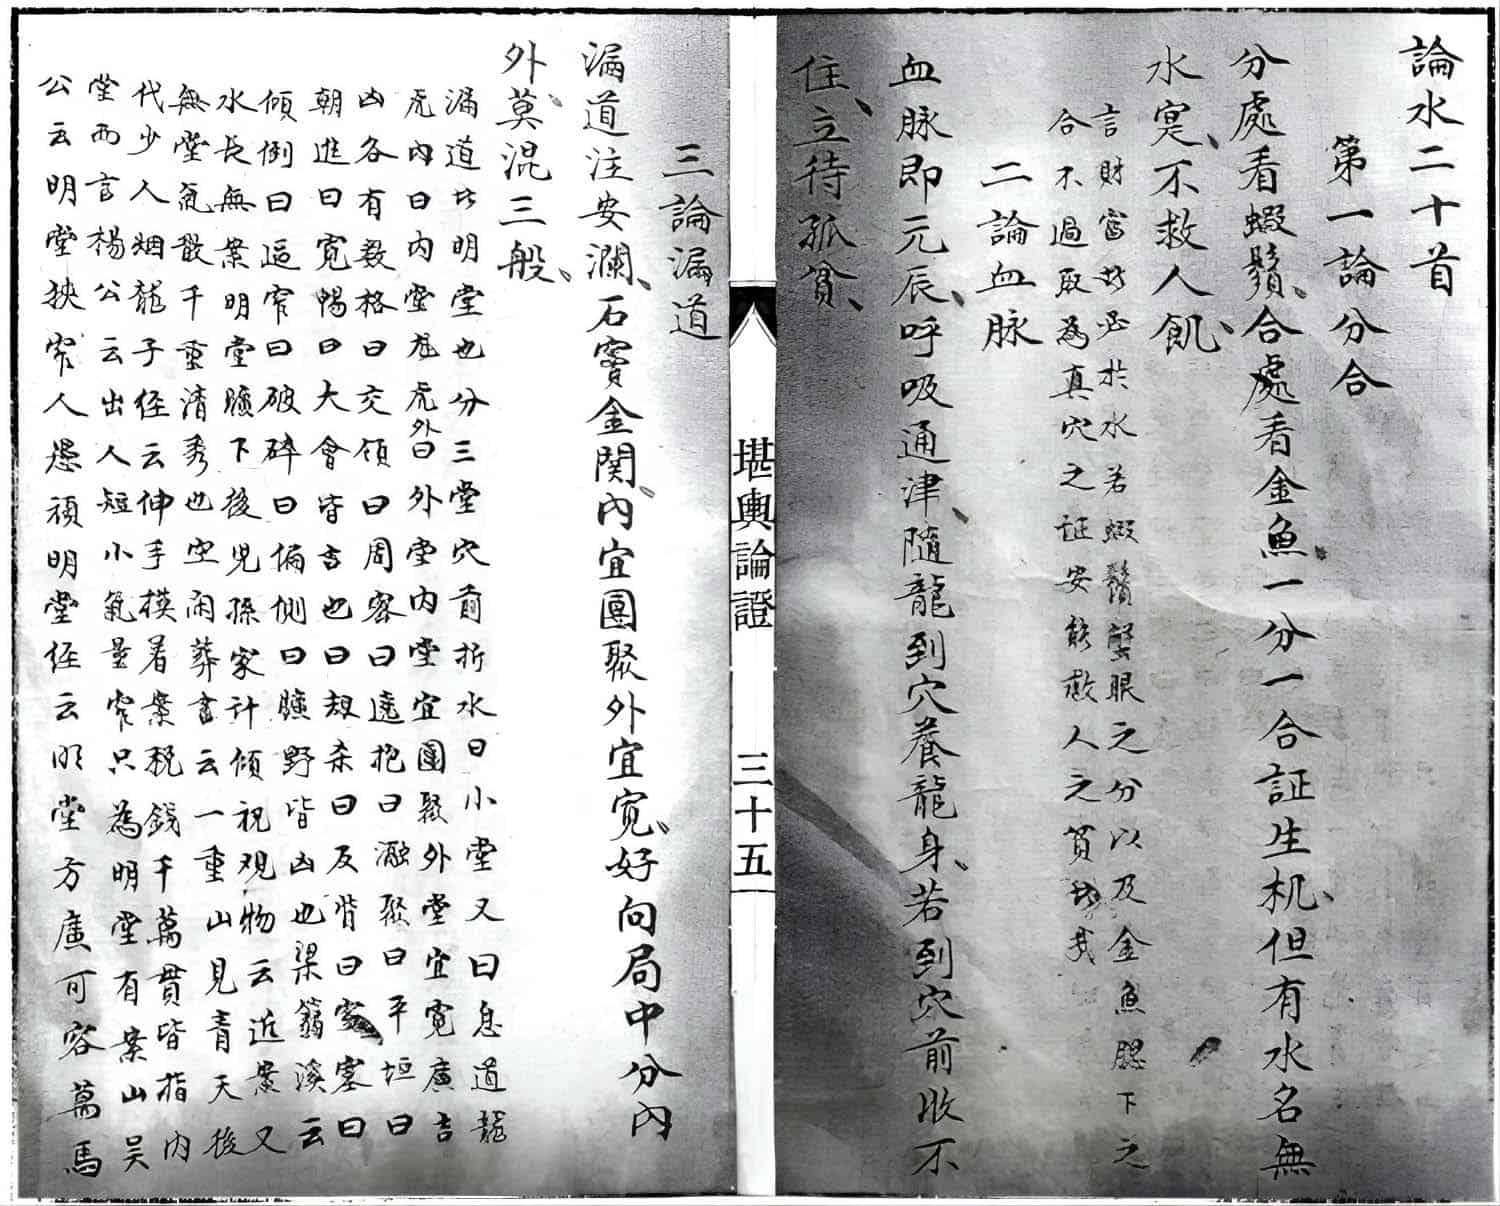 論水二十首
第一論分合
分處看蝦鬚、合處看金魚一分一合証生机、但有水名無
水寔、不救人飢、
言財富者必於水若蝦鬚蟹眼之分以及金魚腮下之
合不過取為真穴之証安能救人之貧者哉
二論血脉
血脉即元辰、呼吸通津、隨龍到穴養龍身、若到穴前收不
住、立待孤貧、
堪輿論證
三十五
三論漏道
漏道注安瀾、石竇金関、內宜團聚外宜寬、好向局中分內
外、莫混三般、
漏道者明堂也分三堂穴前折水曰小堂又曰息道龍
虎內曰內堂龍虎外曰外堂內堂宜團聚外堂宜寬廣吉
凶各有数格曰交領曰周密曰遶抱曰瀜聚曰平垣曰
朝進曰寬暢曰大會皆吉也曰刼杀曰反背曰窒塞曰
傾倒曰逼窄曰破碎曰偏側曰曠野皆凶也梁箬溪云
水長無案明堂曠下後児孫家計傾祝观物云近案又
無堂氣散千重清秀也空闲葬書云一重山見青天後
代少人烟龍子経云伸手模着案税錢千萬貫皆指內
堂而言楊公云出人短小氣量窄只為明堂有案山吴
公云明堂挾窄人愚頑明堂経云明堂方廣可容萬馬